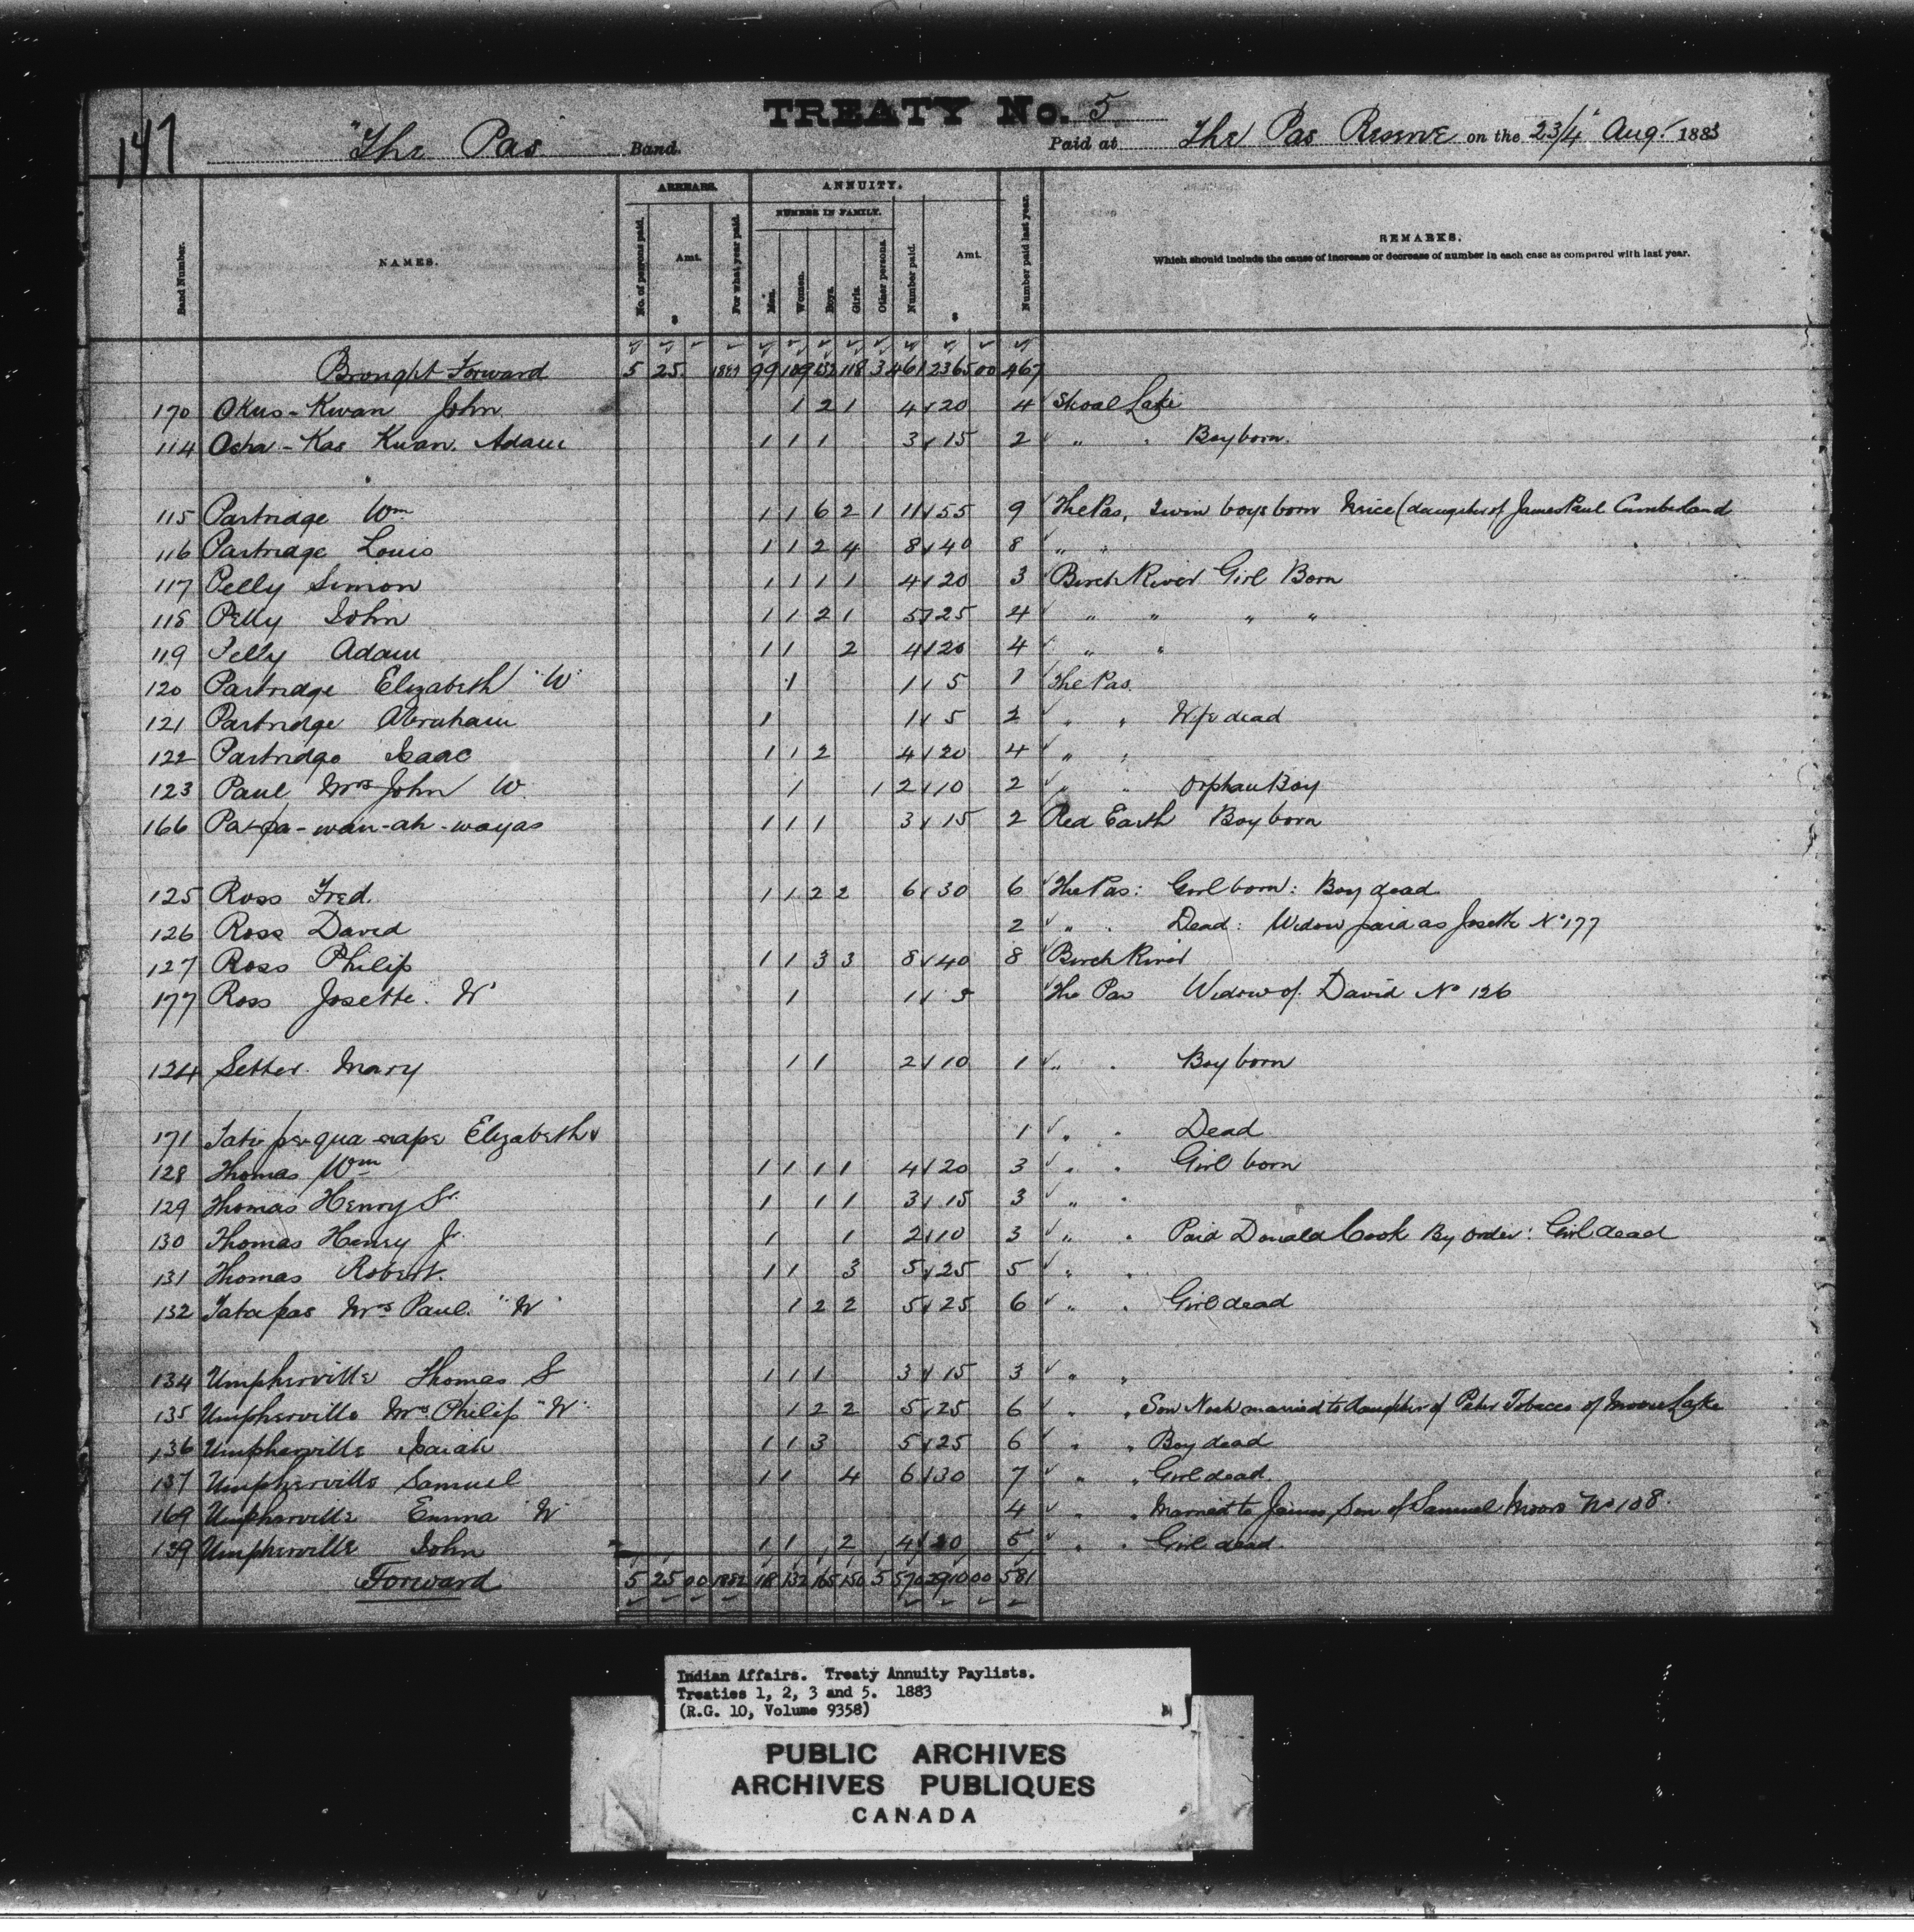 147
TREATY No. 5
"The Pas" Band. Paid at The Pas Reserve on the 23/4 Aug. 1883
Band Number. NAMES. ARREARS. No. of persons paid. Amt. $ For what year paid. ANNUITY. NUMBER IN FAMILY. Men. Women. Boys. Girls. Other persons. Number paid. Amt. $ Number paid last year. REMARKS.
Which should include the cause of increase or decrease of number in each case as compared with last year.
Brought Forward 5 25 99 109 132 118 3 461 2365 00 467
170 Okus-Kwan John 1 2 1 4 20 4 Shoal Lake
114 Ocha-Kas Kwan. Adam 1 1 1 3 15 2 " " Boy born.
115 Partridge Wm 1 1 6 2 1 11 55 9 The Pas, Twin boys born Neice (daughter of James Paul Cumberland
116 Partridge Louis 1 1 2 4 8 40 8 " "
117 Pelly Simon 1 1 1 1 4 20 3 Birch River Girl Born
118 Pelly John 1 1 2 1 5 25 4 " " " "
119 Pelly Adam 1 1 2 4 20 4 " "
120 Partridge Elizabeth "W" 1 1 5 1 The Pas.
121 Partridge Abraham 1 1 5 2 " " Wife dead
122 Partridge Isaac 1 1 2 4 20 4 " "
123 Paul Mrs John W. 1 1 2 10 2 " " Orphan Boy
166 Pa-pa-wan-ah-wayas 1 1 1 3 15 2 Red Earth Boy born
125 Ross Fred. 1 1 2 2 6 30 6 The Pas: Girl born: Boy dead
126 Ross David 2 " " Dead: Widow paid as Josette No 177
127 Ross Philip 1 1 3 3 8 40 8 Birch River
177 Ross Josette. W 1 1 5 The Pas Widow of David No 126
124 Setter Mary 1 1 2 10 1 " " Boy born
171 Elizabeth 1 " " Dead
128 Thomas Wm 1 1 1 1 4 20 3 " " Girl born
129 Thomas Henry Sr. 1 1 1 3 15 3 " "
130 Thomas Henry Jr. 1 1 2 10 3 " " Paid Donald Cook By order: Girl dead
131 Thomas Robert. 1 1 3 5 25 5 " "
132 Tatapas Mrs Paul. "W" 1 2 2 5 25 6 " " Girl dead
134 Umpherville Thomas S 1 1 1 3 15 3 " "
135 Umpherville Mrs Philip "W" 1 2 2 5 25 6 " " Son Noah married to daughter of Peter Tobacco of Moose Lake
136 Umpherville Isaiah 1 1 3 5 25 6 " " Boy dead
137 Umpherville Samuel 1 1 4 6 30 7 " " Girl dead
169 Umpherville Emma "W" 4 " " Married to James, Son of Samuel Moore No 108.
139 Umpherville John 1 1 2 4 20 5 " " Girl dead.
Forward 5 25 00 1882 118 132 165 150 5 570 2910 00 581
Indian Affairs. Treaty Annuity Paylists.
Treaties 1, 2, 3 and 5. 1883
(R.G. 10, Volume 9358)
PUBLIC ARCHIVES
ARCHIVES PUBLIQUES
CANADA